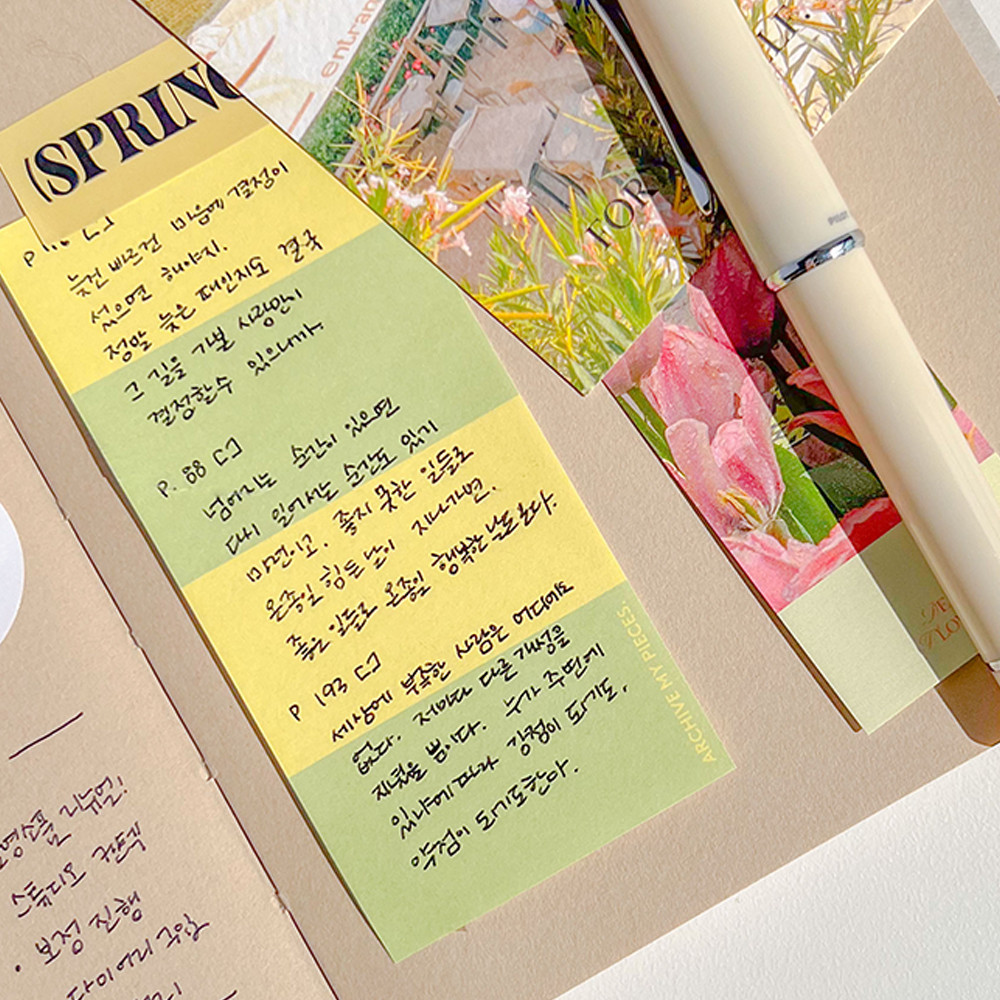 (SPRING
늦건 빠르건 마음에 결정이
섰으면 해야지.
정말 늦은 때인지도 결국
그 길을 가본 사람만이
결정할수 있으니까
P. 88 ㄷㄱ
넘어지는 순간이 있으면
다시 일어나는 순간도 있기
마련이고, 좋지 못한 일들로
온종일 힘든 날이 지나가면,
좋은 일들로 온종일 행복한 날도 온다.
P 193 ㄷㄱ
세상에 부족한 사람은 어디에도
없다. 저마다 다른 개성을
지녔을 뿐이다. 누가 주변에
있냐에 따라 강점이 되기도,
약점이 되기도한다.
ARCHIVE MY PIECES
entran
FOR
PILOT
스튜디오 컨택
· 보정 진행
다이어리 구입